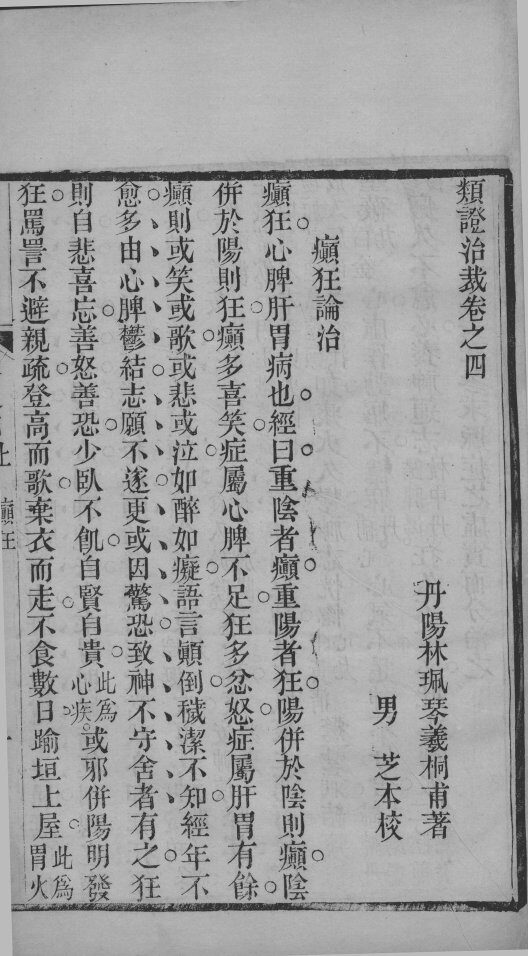 類證治裁卷之四
丹陽林珮琴羲桐甫著
男 芝本校
癲狂論治
癲狂心脾肝胃病也經曰重陰者癲重陽者狂陽併於陰則癲陰
併於陽則狂癲多喜笑症屬心脾不足狂多忿怒症屬肝胃有餘
癲則或笑或歌或悲或泣如醉如癡語言顚倒穢潔不知經年不
愈多由心脾鬱結志願不遂更或因驚恐致神不守舍者有之狂
則自悲喜忘善怒善恐少臥不飢自賢自貴此爲心疾或邪併陽明發
狂罵詈不避親疏登高而歌棄衣而走不食數日踰垣上屋此爲胃火
癲狂
一